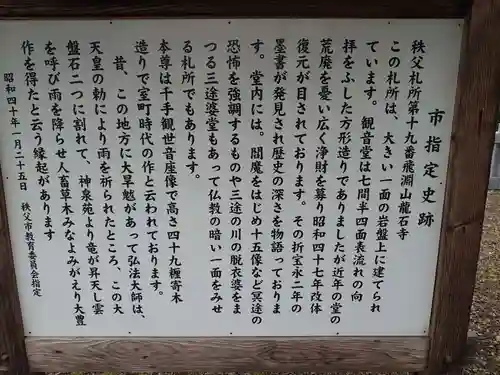 市指定史跡
秩父札所第十九番飛淵山龍石寺
この札所は、大きい一面の岩盤上に建てられ
ています。観音堂は七間半四面表流れの向
拝をふした方形造りでありましたが近年の堂の
荒廃を憂い広く浄財を募り昭和四十七年改体
復元が目されております。その折宝永二年の
墨書が発見され歴史の深さを物語っておりま
す。堂内には。閻魔をはじめ十五像など冥途の
恐怖を強調するものや三途の川の脱衣婆をま
つる三途婆堂もあって仏教の暗い一面をみせ
る札所でもあります。
本尊は千手観世音座像で高さ四十九糎寄木
造りで室町時代の作と云われております。
昔、この地方に大旱魃があって弘法大師は、
天皇の勅により雨を祈られたところ、この大
盤石二つに割れて、神泉苑より竜が昇天し雲
を呼び雨を降らせ人畜草木みなよみがえり大豊
作を得たと云う縁起があります
昭和四十年一月二十五日 秩父市教育委員会指定